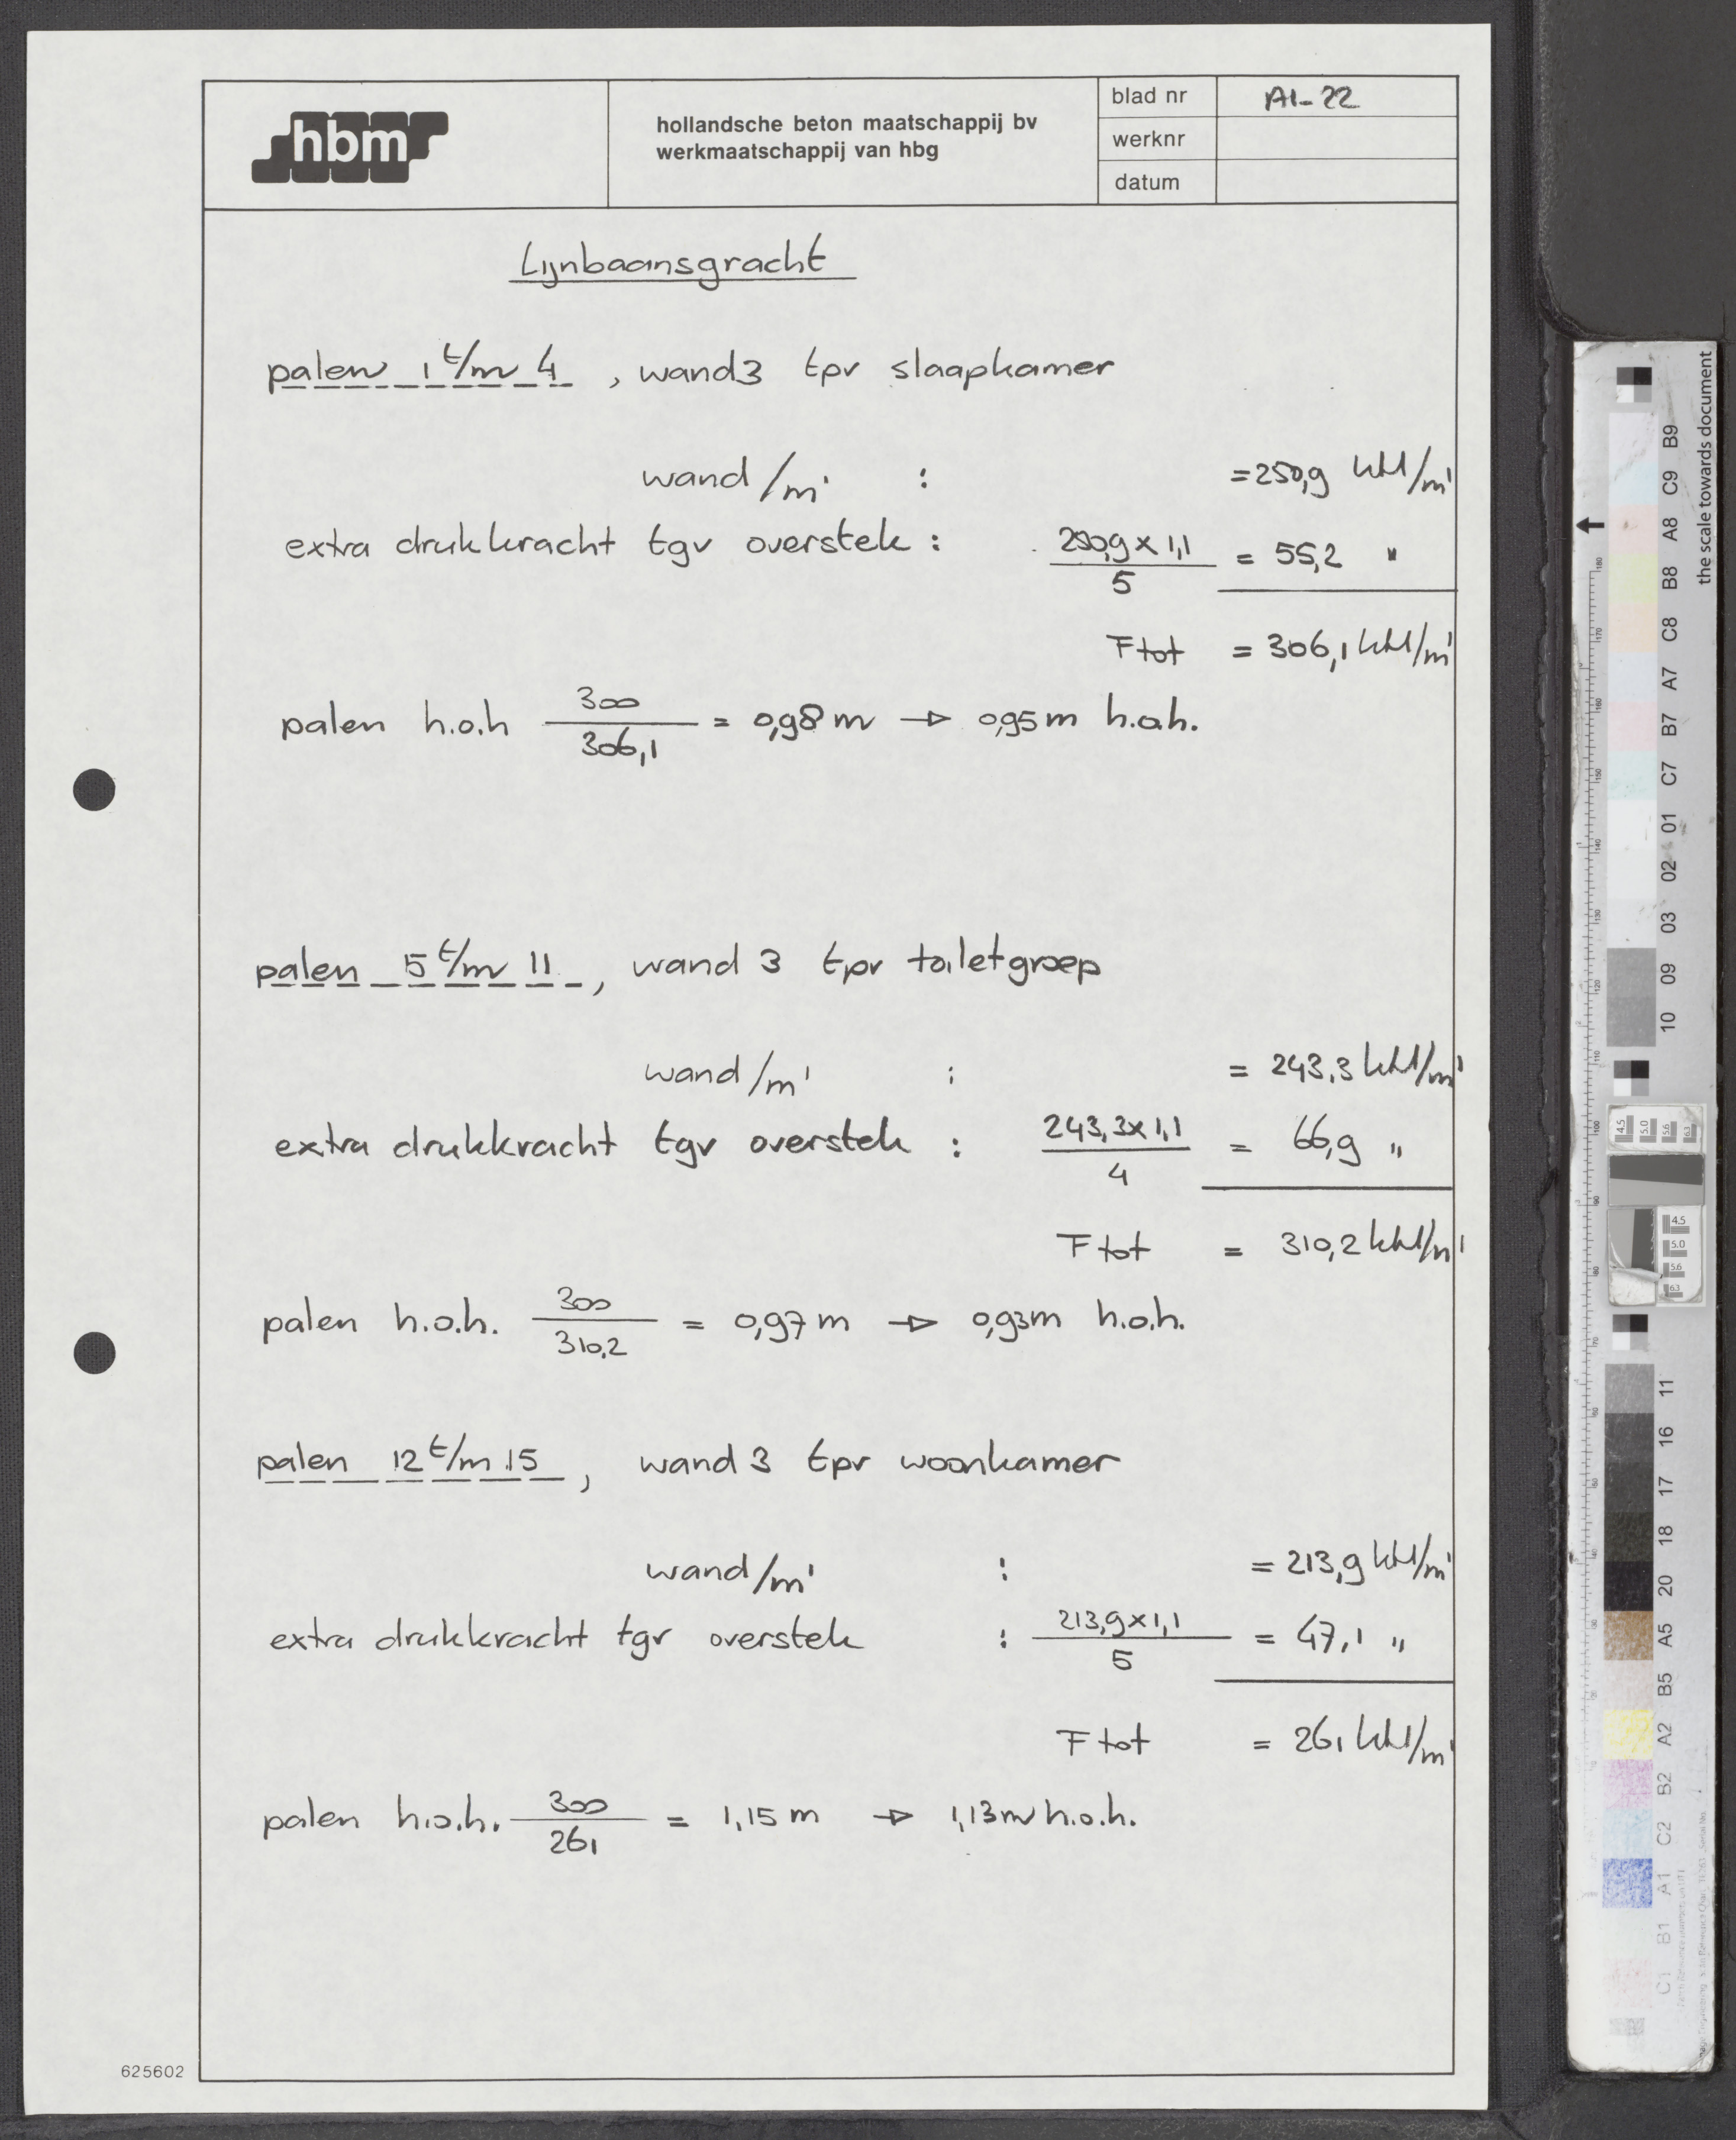 hbm
hollandsche beton maatschappij bv
werkmaatschappij van hbg
blad nr A1-22
werknr
datum
Lijnbaansgracht
palen 1 t/m 4, wand3 tpv slaapkamer
wand/m' : = 250,9 kN/m'
extra drukkracht tgv overstek : 250,9 x 1,1 / 5 = 55,2 "
Ftot = 306,1 kN/m'
palen h.o.h 300 / 306,1 = 0,98 m → 0,95 m h.o.h.
palen 5 t/m 11, wand 3 tpv toiletgroep
wand/m' : = 243,3 kN/m'
extra drukkracht tgv overstek : 243,3 x 1,1 / 4 = 66,9 "
F tot = 310,2 kN/m'
palen h.o.h. 300 / 310,2 = 0,97 m → 0,93 m h.o.h.
palen 12 t/m 15, wand 3 tpv woonkamer
wand/m' : = 213,9 kN/m'
extra drukkracht tgv overstek : 213,9 x 1,1 / 5 = 47,1 "
F tot = 261 kN/m'
palen h.o.h. 300 / 261 = 1,15 m → 1,13 m h.o.h.
625602
the scale towards document
B9
C9
A8
B8
C8
A7
B7
C7
01
02
03
09
10
11
16
17
18
20
A5
B5
A2
B2
C2
A1
B1
C1